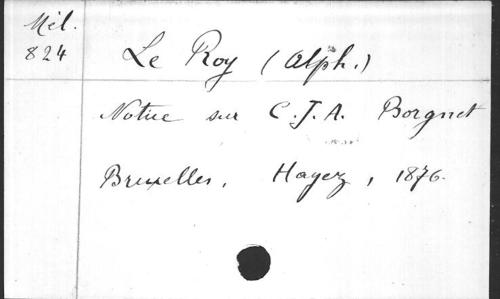 Mél.
824
Le Roy (Alph.)
Notice sur C.J.A. Borgnet
Bruxelles, Hayez, 1876.